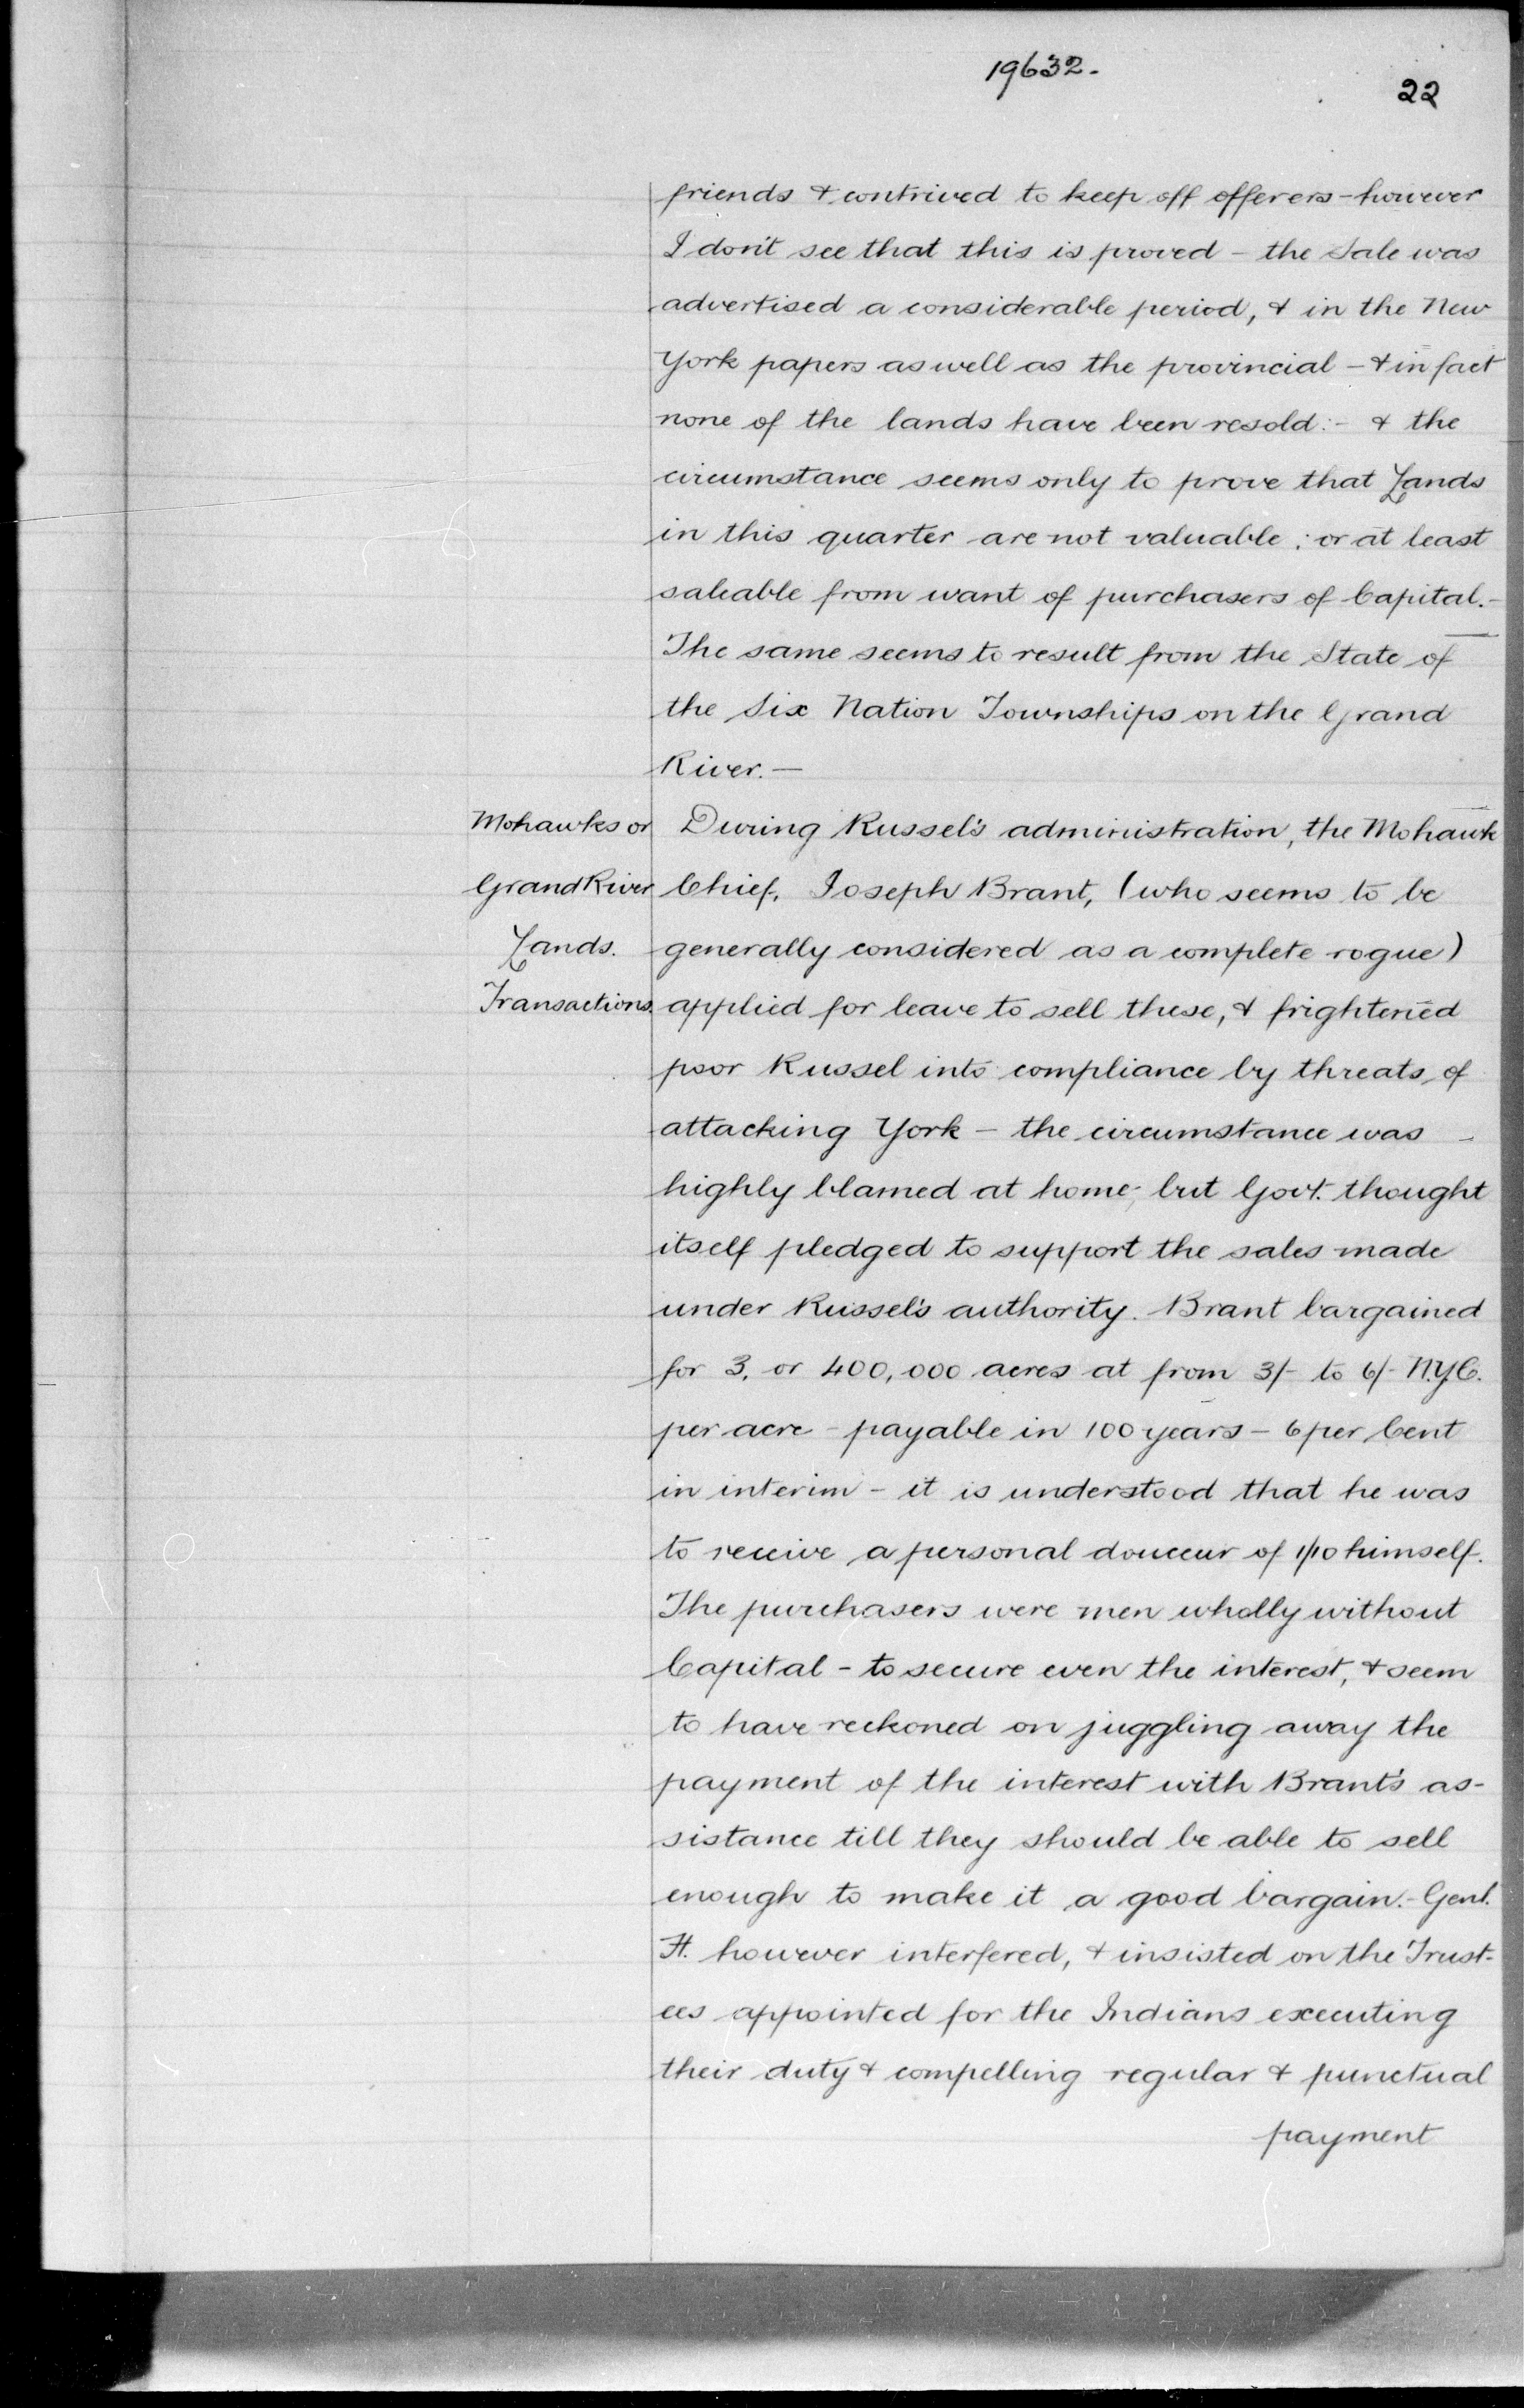 19632.
22
friends & contrived to keep off offerers - however
I don't see that this is proved - the Sale was
advertised a considerable period, & in the New
York papers as well as the provincial - & in fact
none of the lands have been resold:- & the
circumstance seems only to prove that Lands
in this quarter are not valuable; or at least
saleable from want of purchasers of Capital.-
The same seems to result from the State of
the Six Nation Townships on the Grand
River.-
Mohawks or
Grand River
Lands.
Transactions.
During Russel's administration, the Mohawk
Chief, Joseph Brant, (who seems to be
generally considered as a complete rogue)
applied for leave to sell these, & frightened
poor Russel into compliance by threats of
attacking York - the circumstance was -
highly blamed at home; but Govt. thought
itself pledged to support the sales made
under Russel's authority. Brant bargained
for 3. or 400,000 acres at from 3/- to 6/- N.Y.C.
per acre - payable in 100 years - 6 per Cent
in interim - it is understood that he was
to receive a personal douceur of 1/10 himself.
The purchasers were men wholly without
Capital - to secure even the interest, & seem
to have reckoned on juggling away the
payment of the interest with Brant's as-
sistance till they should be able to sell
enough to make it a good bargain.- Genl.
H. however interfered, & insisted on the Trust-
ees appointed for the Indians executing
their duty & compelling regular & punctual
payment